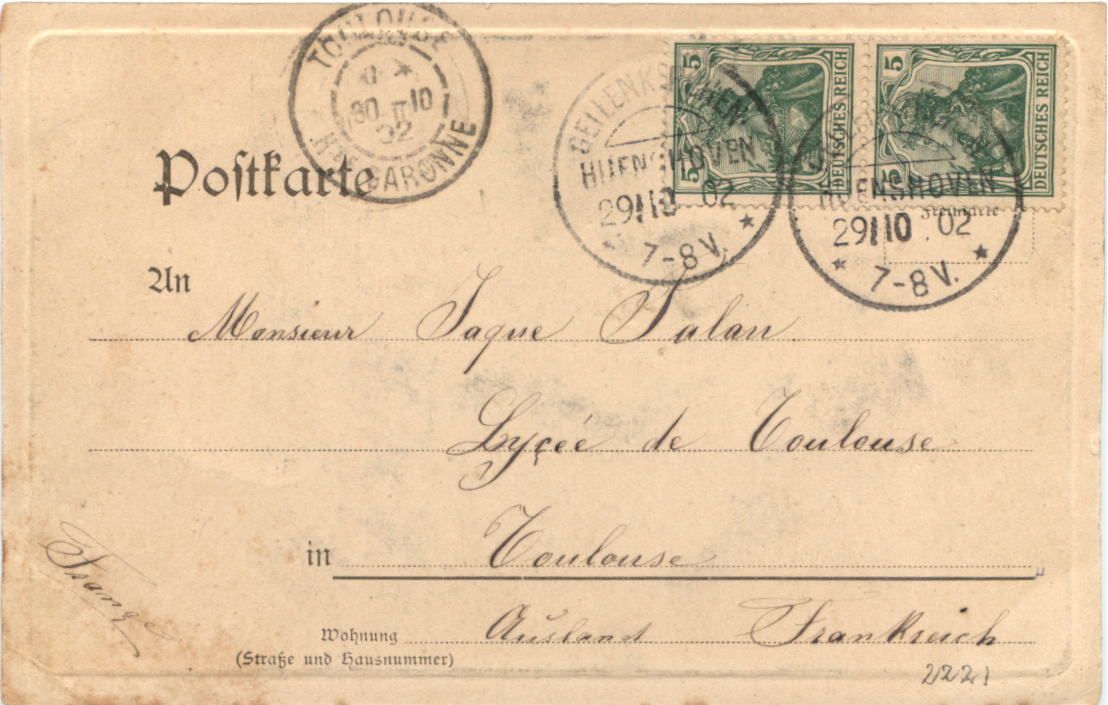 TOULOUSE
30 10
02
HTE GARONNE
GEILENKIRCHEN-
HÜNSHOVEN
29 10 02
7-8V.
5 DEUTSCHES REICH 5
5 DEUTSCHES REICH 5
HÜNSHOVEN
29 10 02
7-8V.
Postkarte
Freimarke
An
Monsieur Jaque Salan
Lycée de Toulouse
in Toulouse
Wohnung Ausland Frankreich
(Straße und Hausnummer)
2221